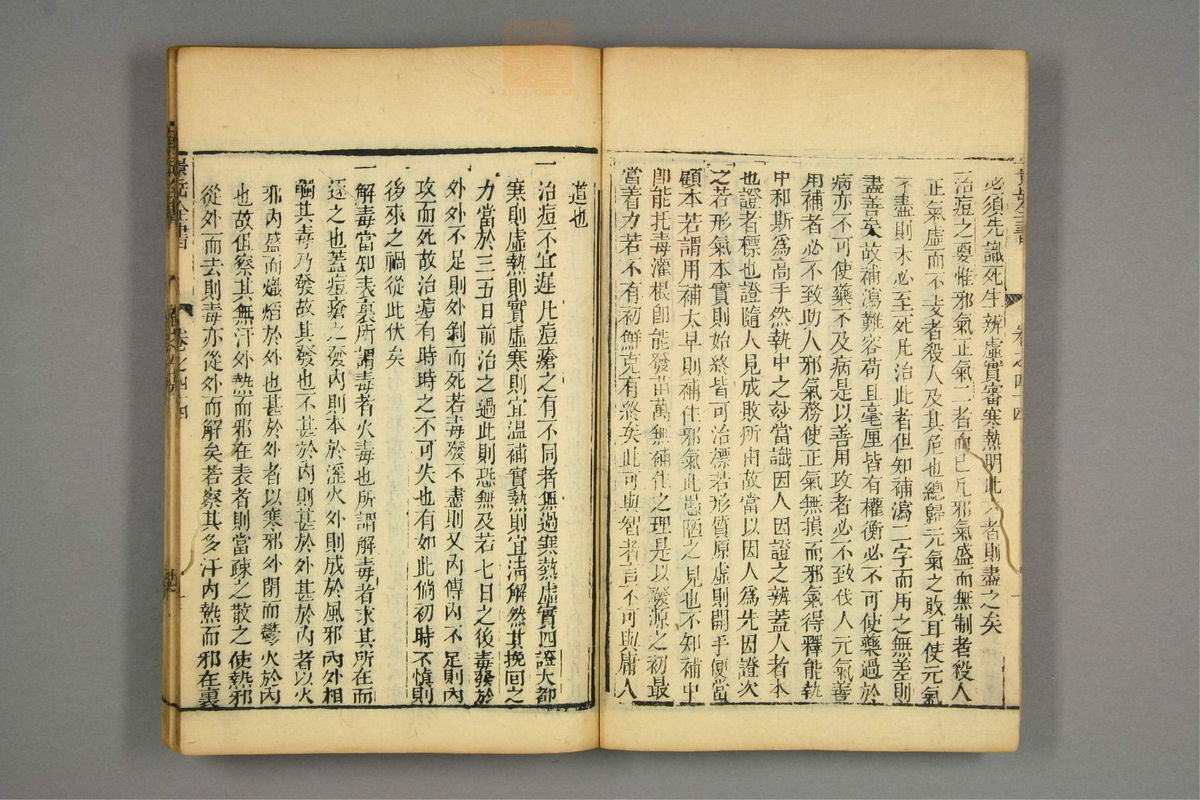 必須先識死生辨虛實審寒熱明此六者則盡之矣
一治痘之要惟邪氣正氣二者而已凡邪氣盛而無制者殺人
正氣虛而不支者殺人及其危也總歸元氣之敗耳使元氣
不盡則未必至死凡治此者但知補瀉二字而用之無差則
盡善矣故補瀉難容苟且毫厘皆有權衡必不可使藥過於
病亦不可使藥不及病是以善用攻者必不致伐人元氣善
用補者必不致助人邪氣務使正氣無損而邪氣得釋能執
中和斯為高手然執中之妙當識因人因證之辨蓋人者本
也證者標也證隨人見成敗所由故當以因人為先因證次
之若形氣本實則始終皆可治標若形質原虛則開手便當
顧本若謂用補太早則補住邪氣此愚陋之見也不知補中
即能托毒灌根即能發苗萬無補住之理是以發源之初最
當着力若不有初鮮克有終矣此可與智者言不可與庸人
道也
一治痘不宜遲凡痘瘡之有不同者無過寒熱虛實四證大都
寒則虛熱則實虛寒則宜溫補實熱則宜清解然其挽回之
力當於三五日前治之過此則恐無及若七日之後毒發於
外外不足則外剝而死若毒發不盡則又內傳內不足則內
攻而死故治痘有時時之不可失也有如此倘初時不慎則
後來之禍從此伏矣
一解毒當知表裏所謂毒者火毒也所謂解毒者求其所在而
逐之也蓋痘瘡之發內則本於淫火外則成於風邪內外相
觸其毒乃發故其發也不甚於內則甚於外甚於內者以火
邪內盛而熾焰於外也甚於外者以寒邪外閉而鬱火於內
也故但察其無汗外熱而邪在表者則當疎之散之使熱邪
從外而去則毒亦從外而解矣若察其多汗內熱而邪在裏
景岳全書
卷之四十四